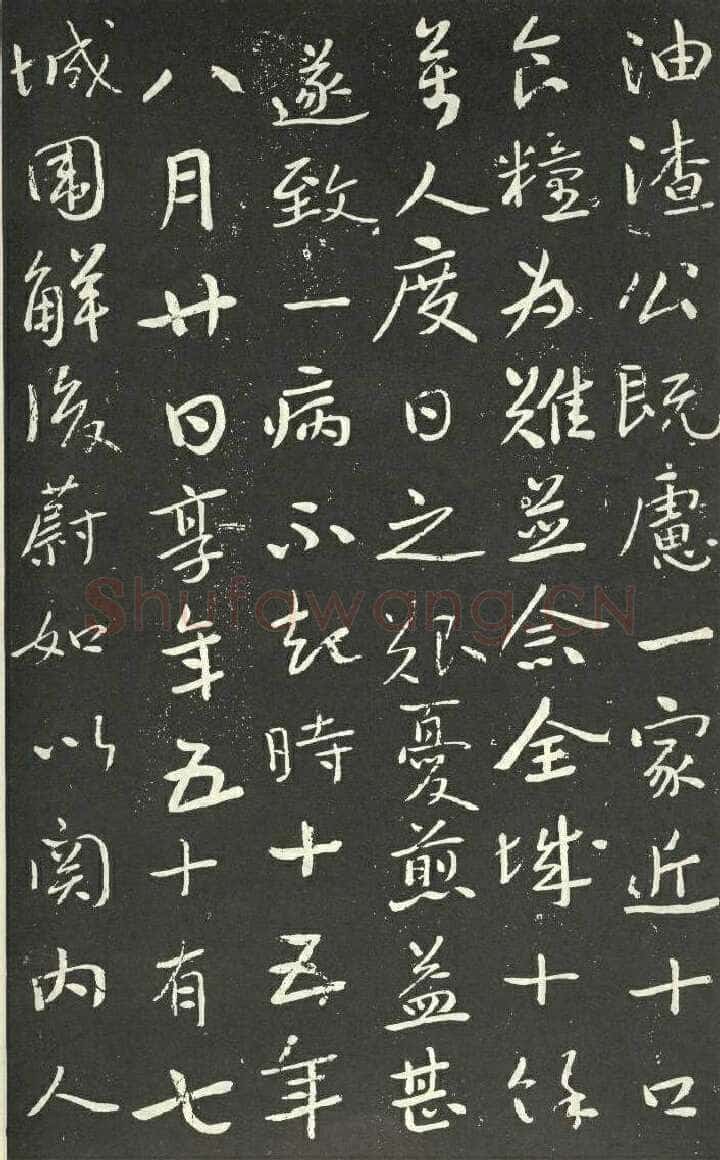 油渣公既慮一家近十口
食糧为難並念全城十餘
萬人度日之艰憂煎益甚
遂致一病不起時十五年
八月廿日享年五十有七
城围解後蔚如以闗内人
Shufawang.CN